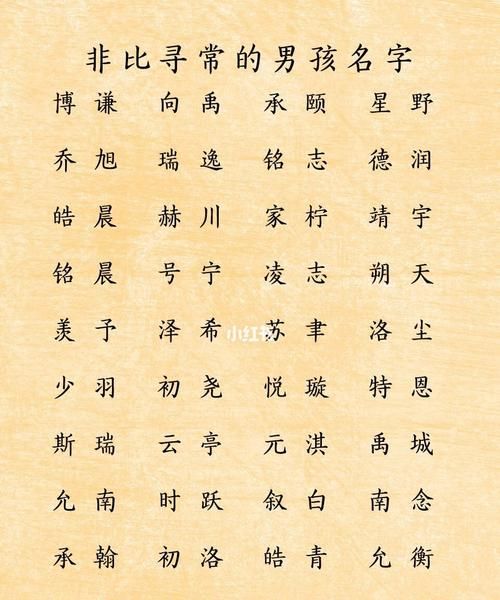 非比寻常的男孩名字
博谦 向禹 承颐 星野
乔旭 瑞逸 铭志 德润
皓晨 赫川 家柠 靖宇
铭晨 号宁 凌志 朔天
羡予 泽希 苏聿 洛尘
小红书
少羽 初尧 悦璇 特恩
斯瑞 云亭 元淇 禹城
允南 时跃 叙白 南念
承翰 初洛 皓青 允衡